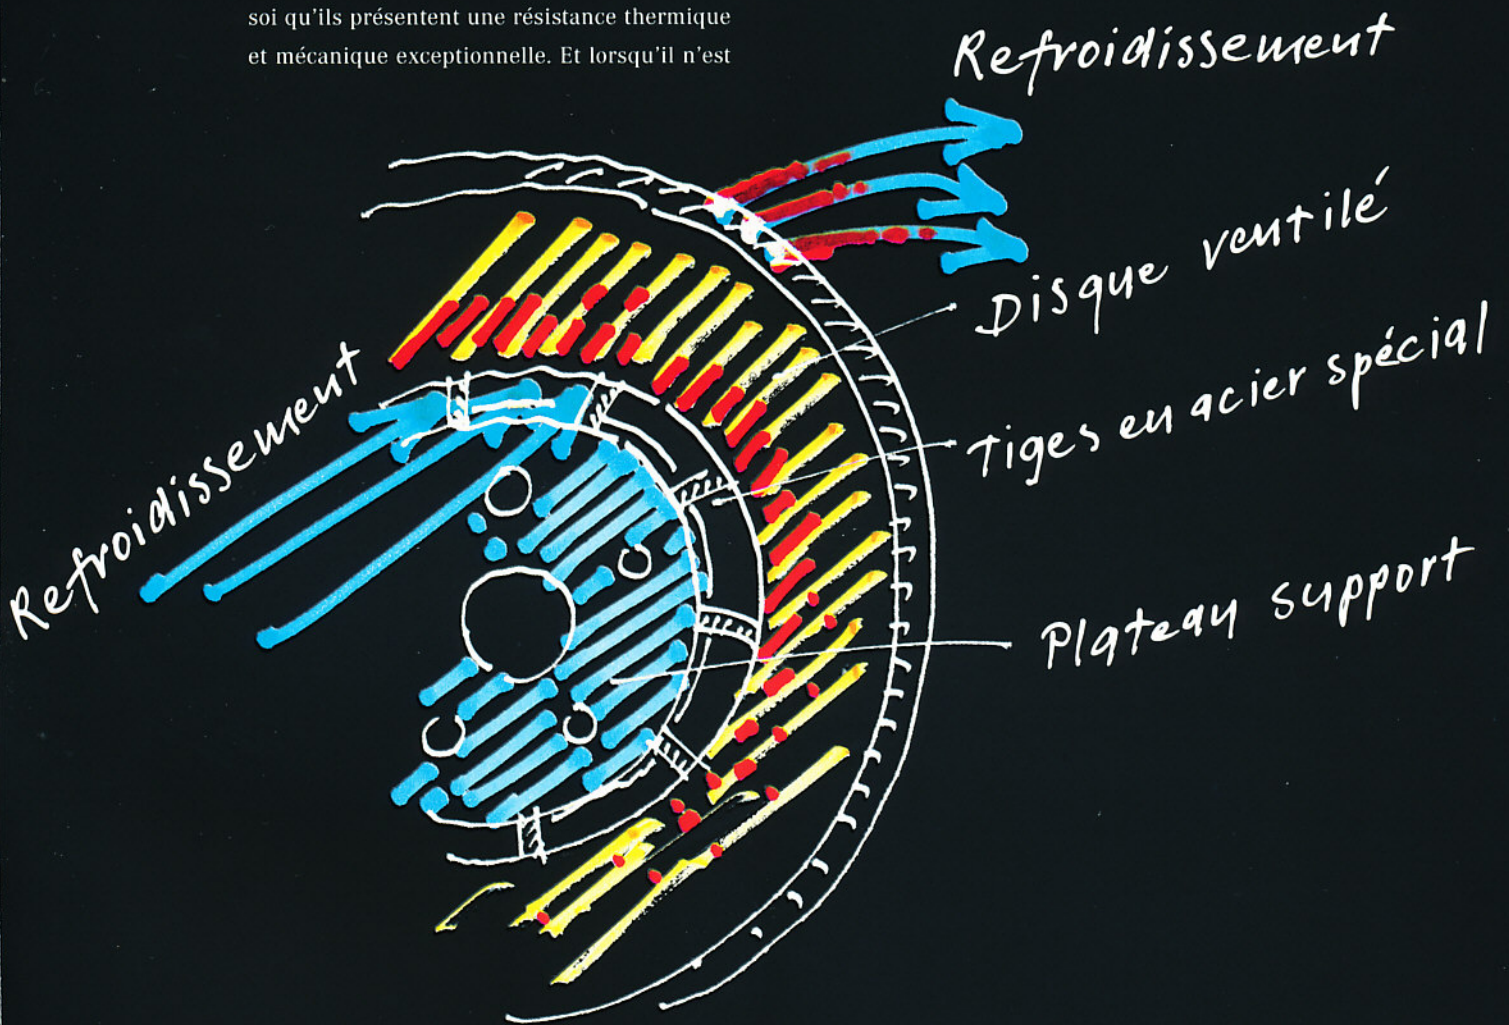 soi qu'ils présentent une résistance thermique
et mécanique exceptionnelle. Et lorsqu'il n'est
Refroidissement
Disque ventilé
Tiges en acier spécial
Refroidissement
Plateau support